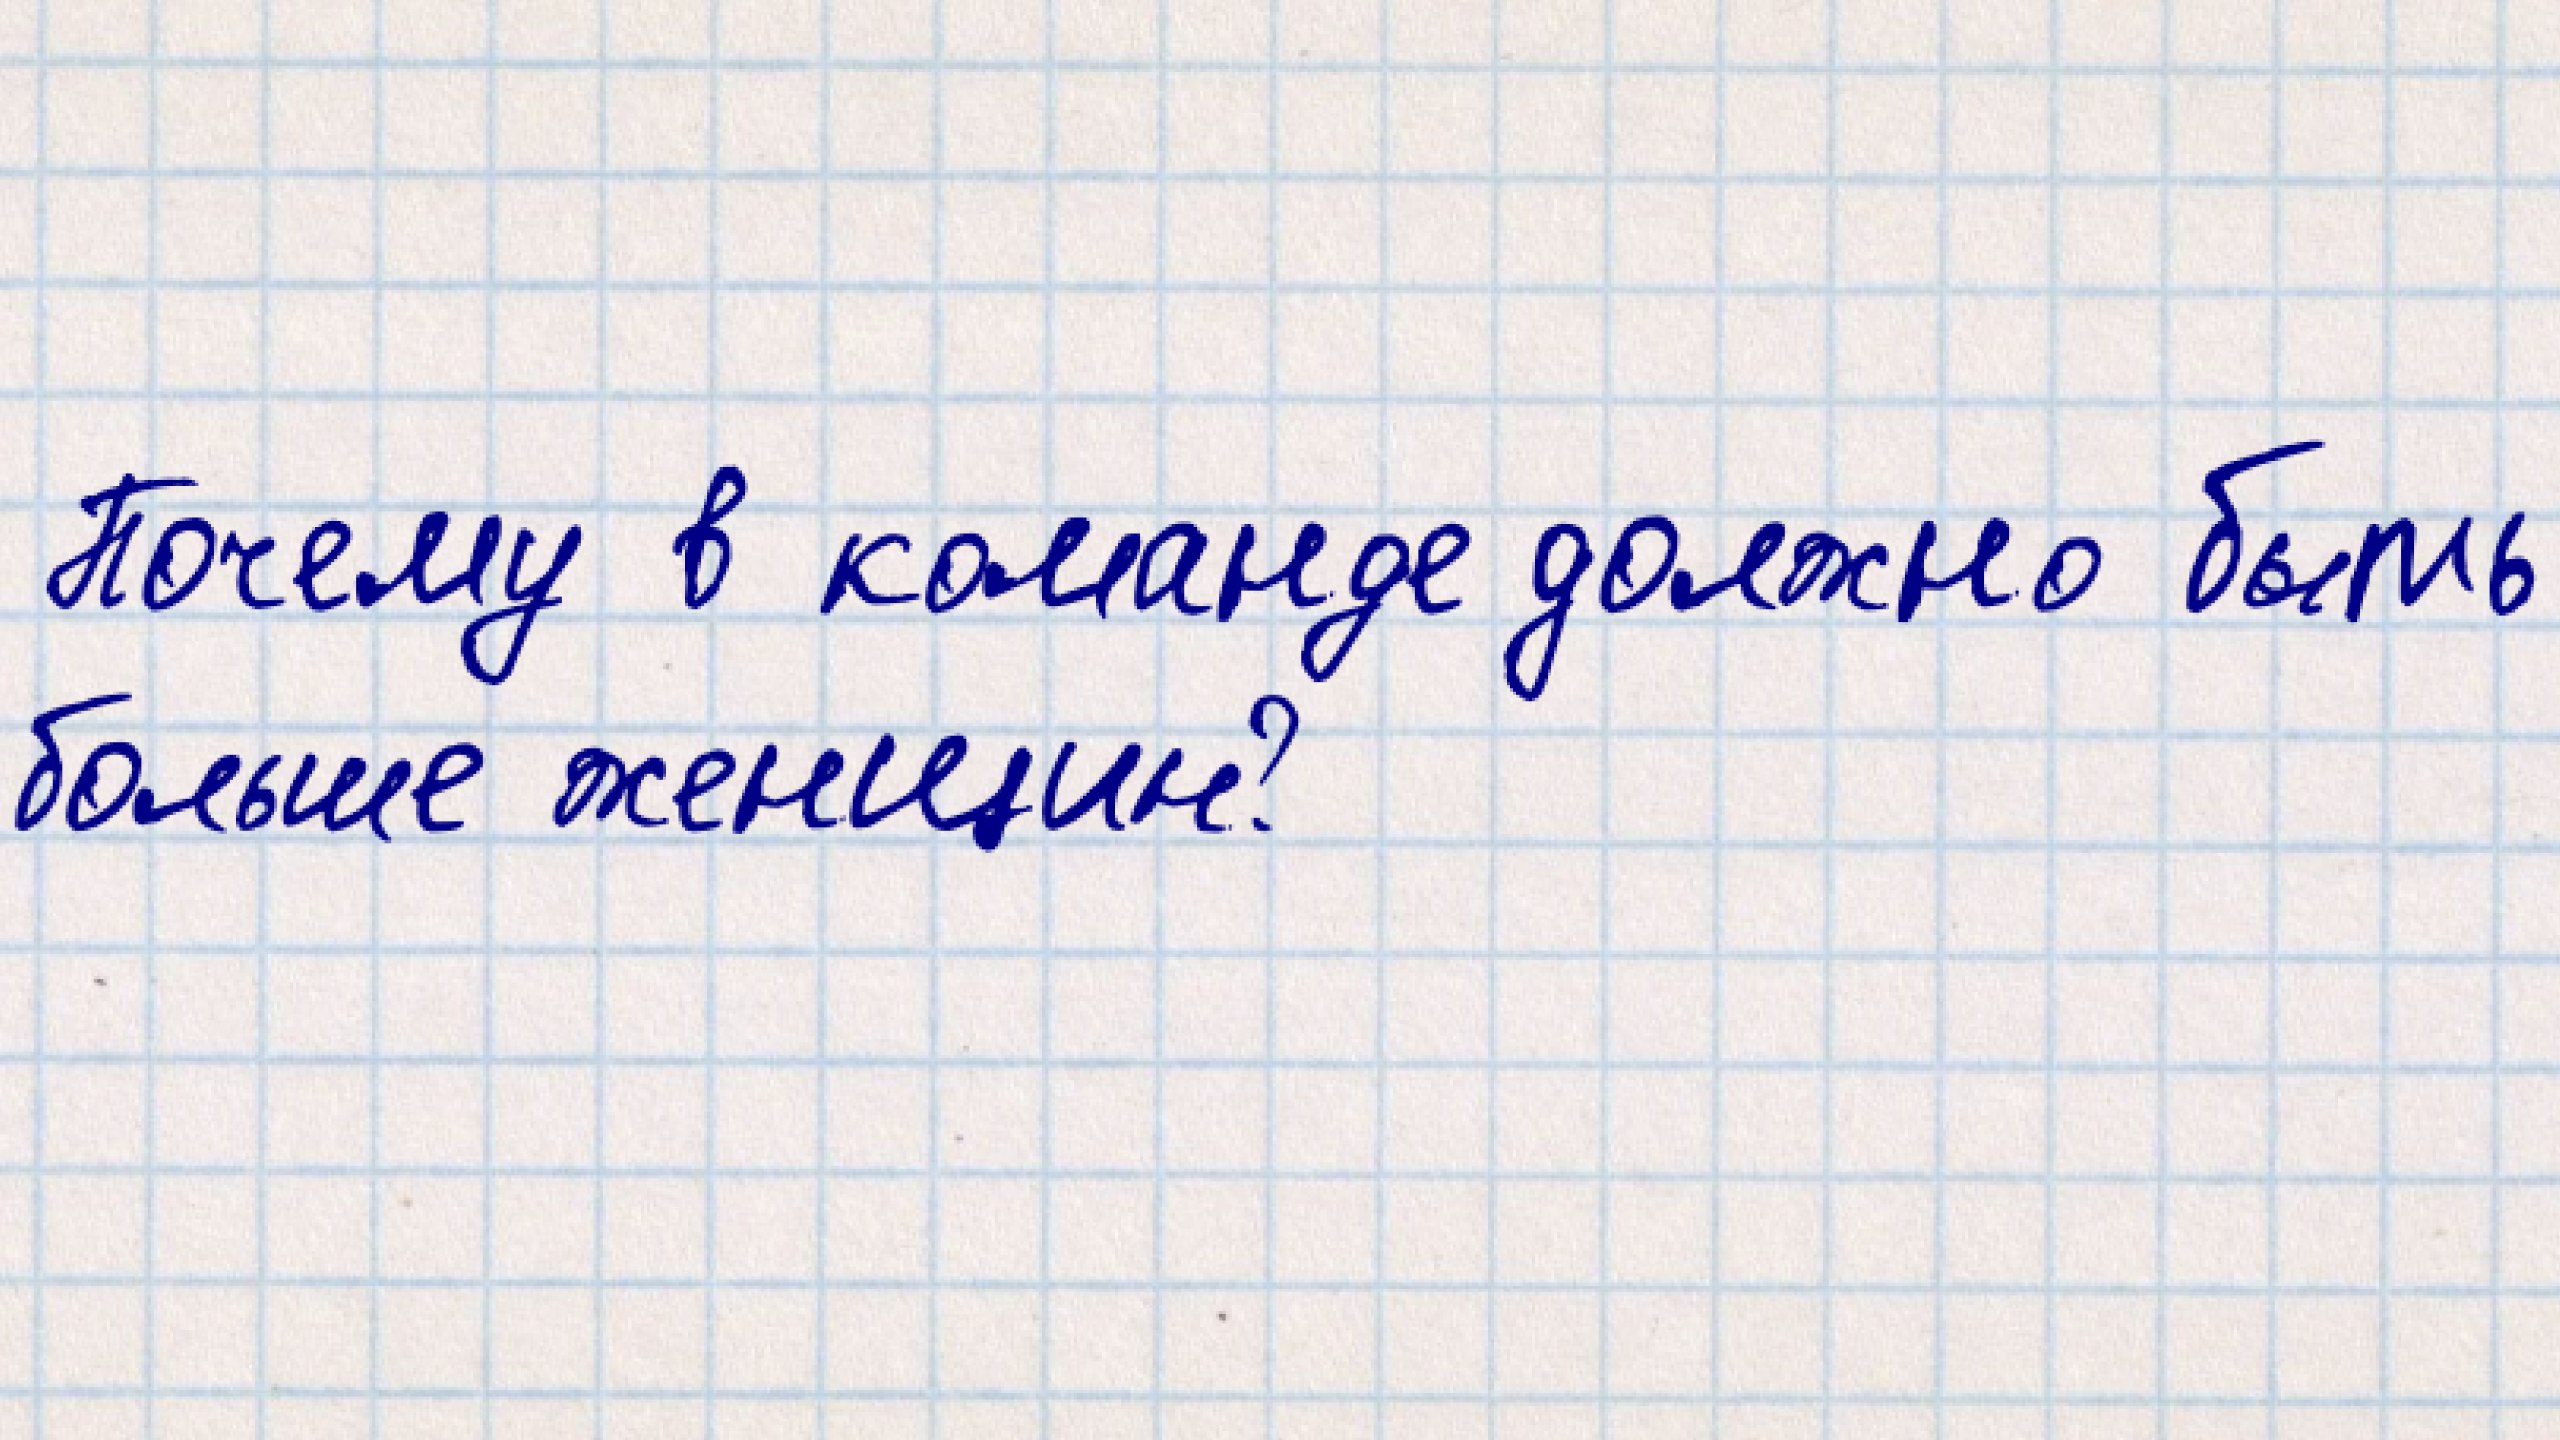 Почему в команде должно быть
больше женщин?